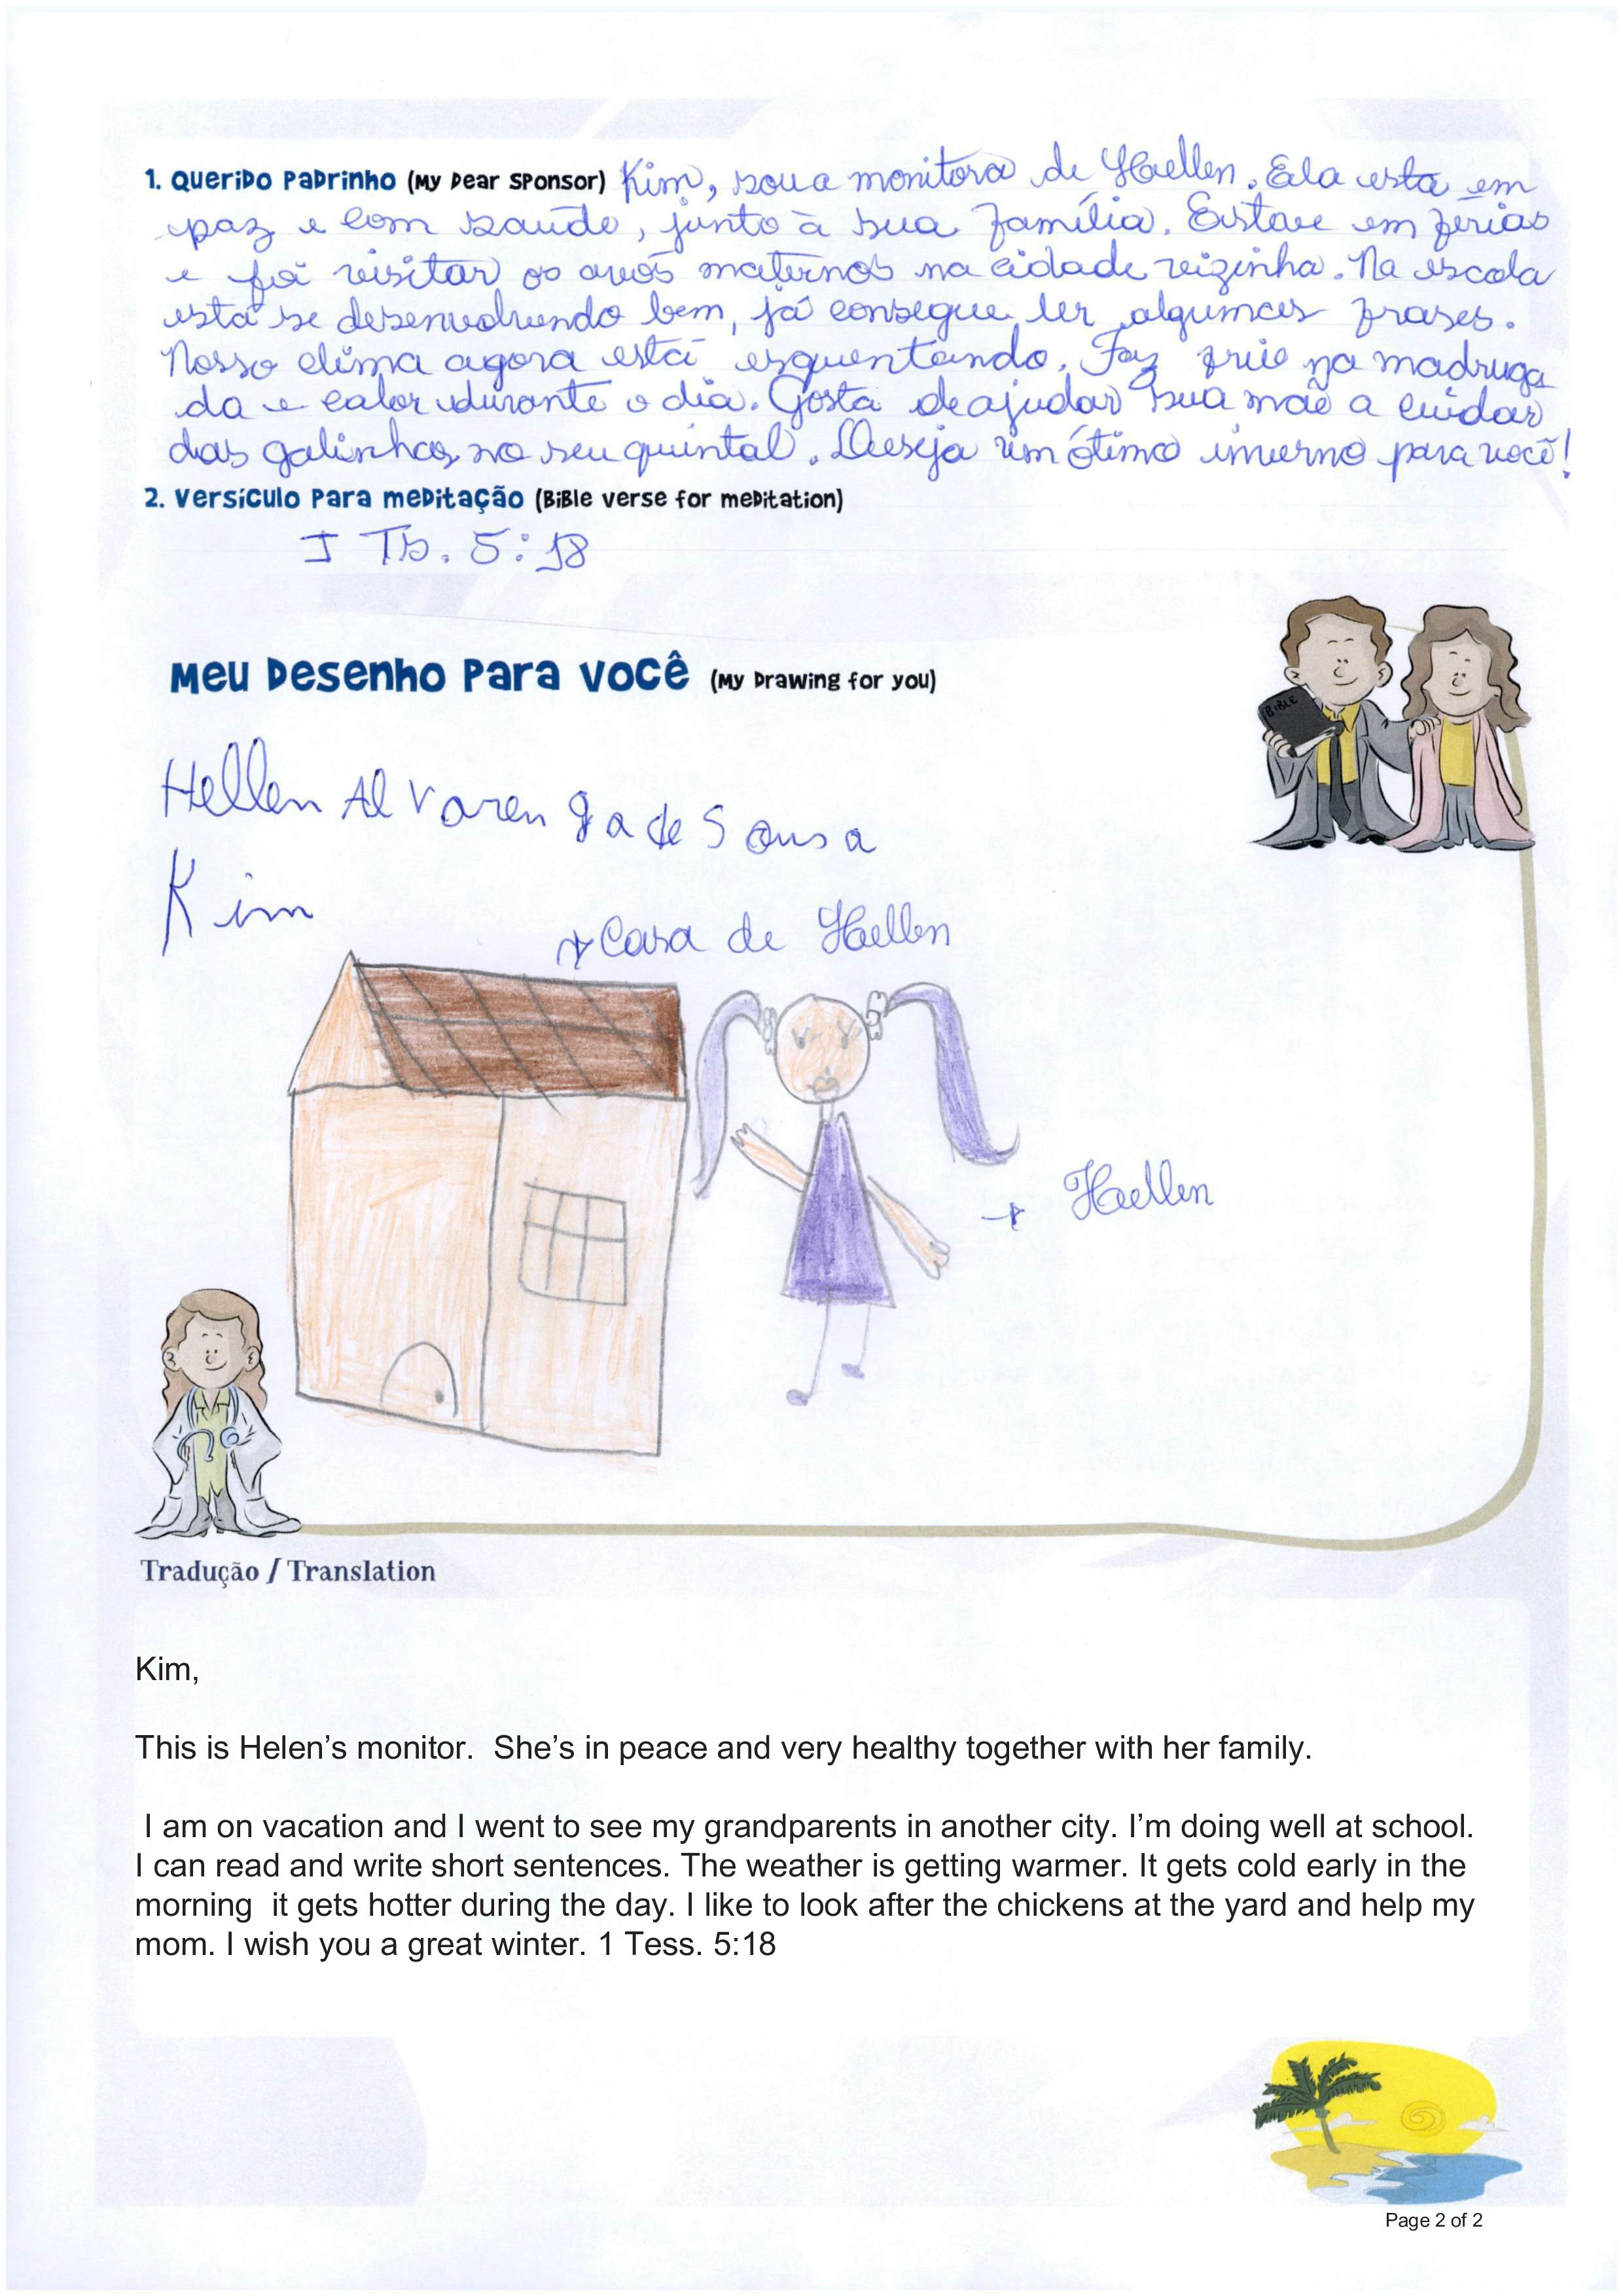 1. Querido Padrinho (My Dear Sponsor) Kim, sou a monitora de Hellen. Ela esta em
paz e com saúde, junto à sua família. Esteve em férias
e foi visitar os avós maternos na cidade vizinha. Na escola
está se desenvolvendo bem, já consegue ler algumas frases.
Nosso clima agora está esquentando. Faz frio na madruga
da e calor durante o dia. Gosta de ajudar sua mãe a cuidar
das galinhas no seu quintal. Deseja um ótimo inverno para você!
2. Versículo para meditação (Bible verse for meditation)
I Ts. 5:18
Meu Desenho Para Você (My Drawing for you)
BIBLE
Hellen Alvarenga de Sousa
Kim
Casa de Hellen
Hellen
Tradução / Translation
Kim,
This is Helen’s monitor.  She’s in peace and very healthy together with her family.
I am on vacation and I went to see my grandparents in another city. I’m doing well at school.
I can read and write short sentences. The weather is getting warmer. It gets cold early in the
morning  it gets hotter during the day. I like to look after the chickens at the yard and help my
mom. I wish you a great winter. 1 Tess. 5:18
Page 2 of 2